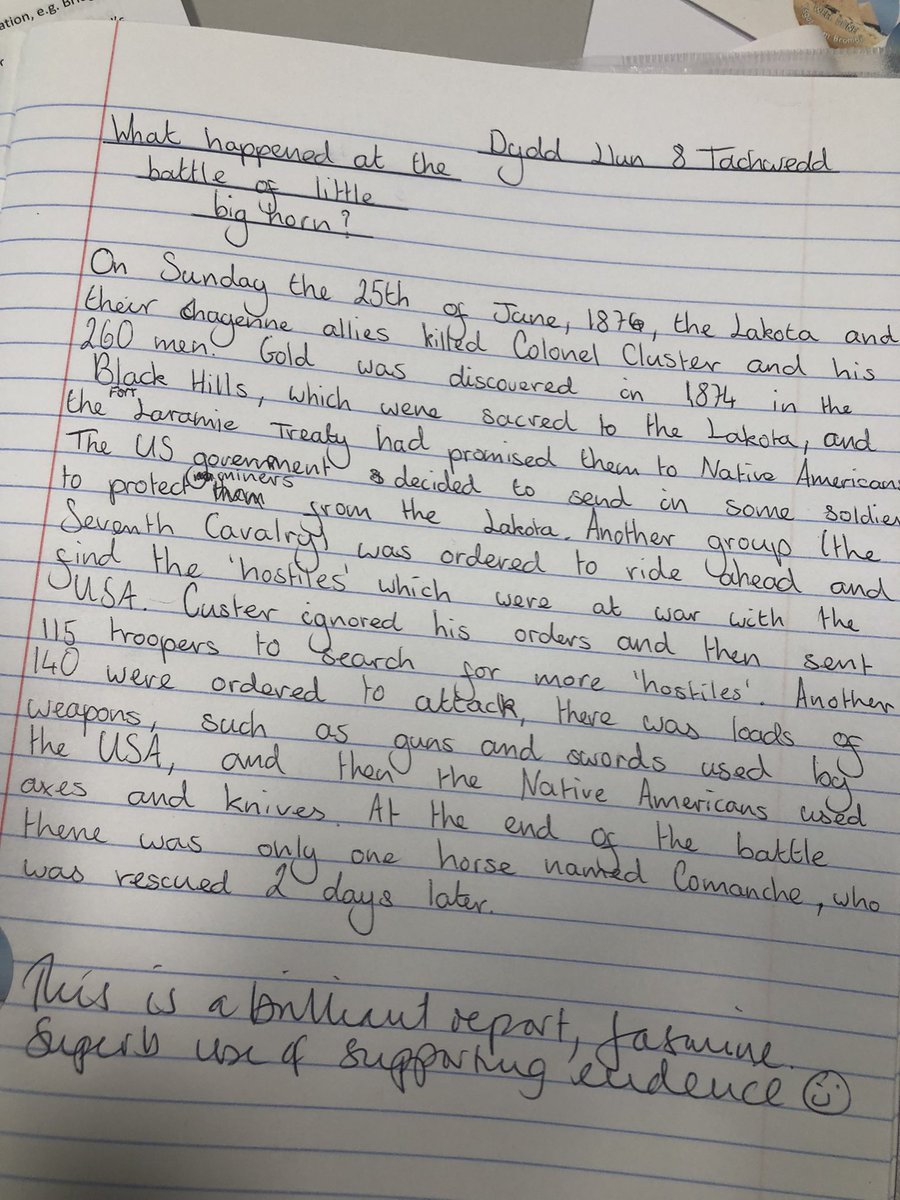 ation, e.g.
What happened at the
battle of little
big horn?
Dydd Llun 8 Tachwedd
On Sunday the 25th of June, 1876, the Lakota and
their chayenne allies killed Colonel Cluster and his
260 men. Gold was discovered in 1874 in the
Black Hills, which were sacred to the Lakota, and
the Fort Laramie Treaty had promised them to Native Americans
The US government decided to send in some soldier
to protect miners from the Lakota. Another group (the
Seventh Cavalry) was ordered to ride ahead and
find the 'hostiles' which were at war with the
USA. Custer ignored his orders and then sent
115 troopers to search for more 'hostiles'. Another
140 were ordered to attack, there was loads of
weapons, such as guns and swords used by
the USA, and then the Native Americans used
axes and knives. At the end of the battle
there was only one horse named Comanche, who
was rescued 2 days later.
This is a brilliant report, Jasmine.
Superb use of supporting evidence